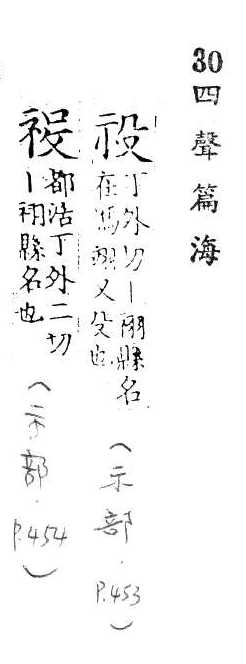 30 四聲篇海
祋
丁外切丨祤縣名
在馮翊又殳也
(示部.P.453)
祋
都活丁外二切
丨祤縣名也
(示部.P.454)